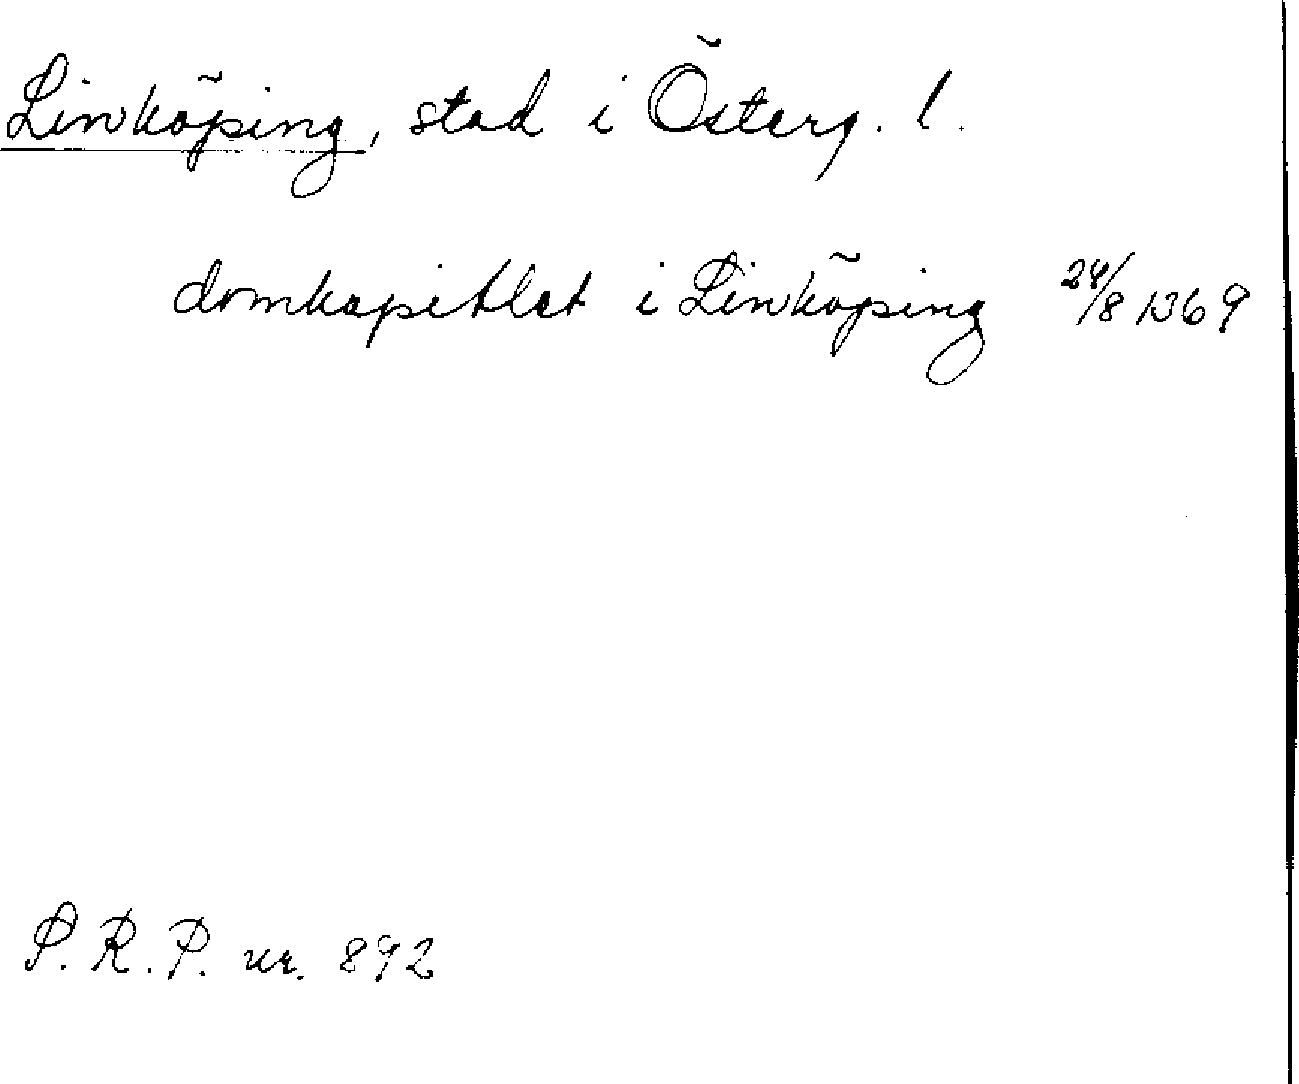 Linköping, stad i Österg. l.
domkapitlet i Linköping 24/8 1369
S. R. P. nr. 892